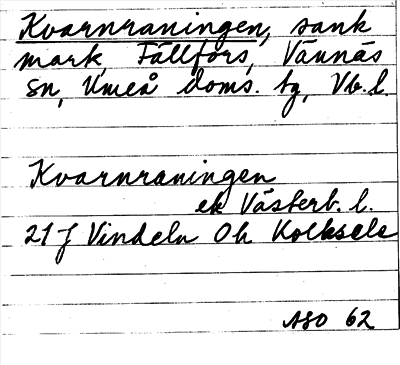 Kvarnraningen, sank
mark, Fällfors, Vännäs
sn, Umeå doms. tg, Vb.l.
Kvarnraningen
ek Västerb. l.
21 J Vindeln Oh Kolksele
ASO 62